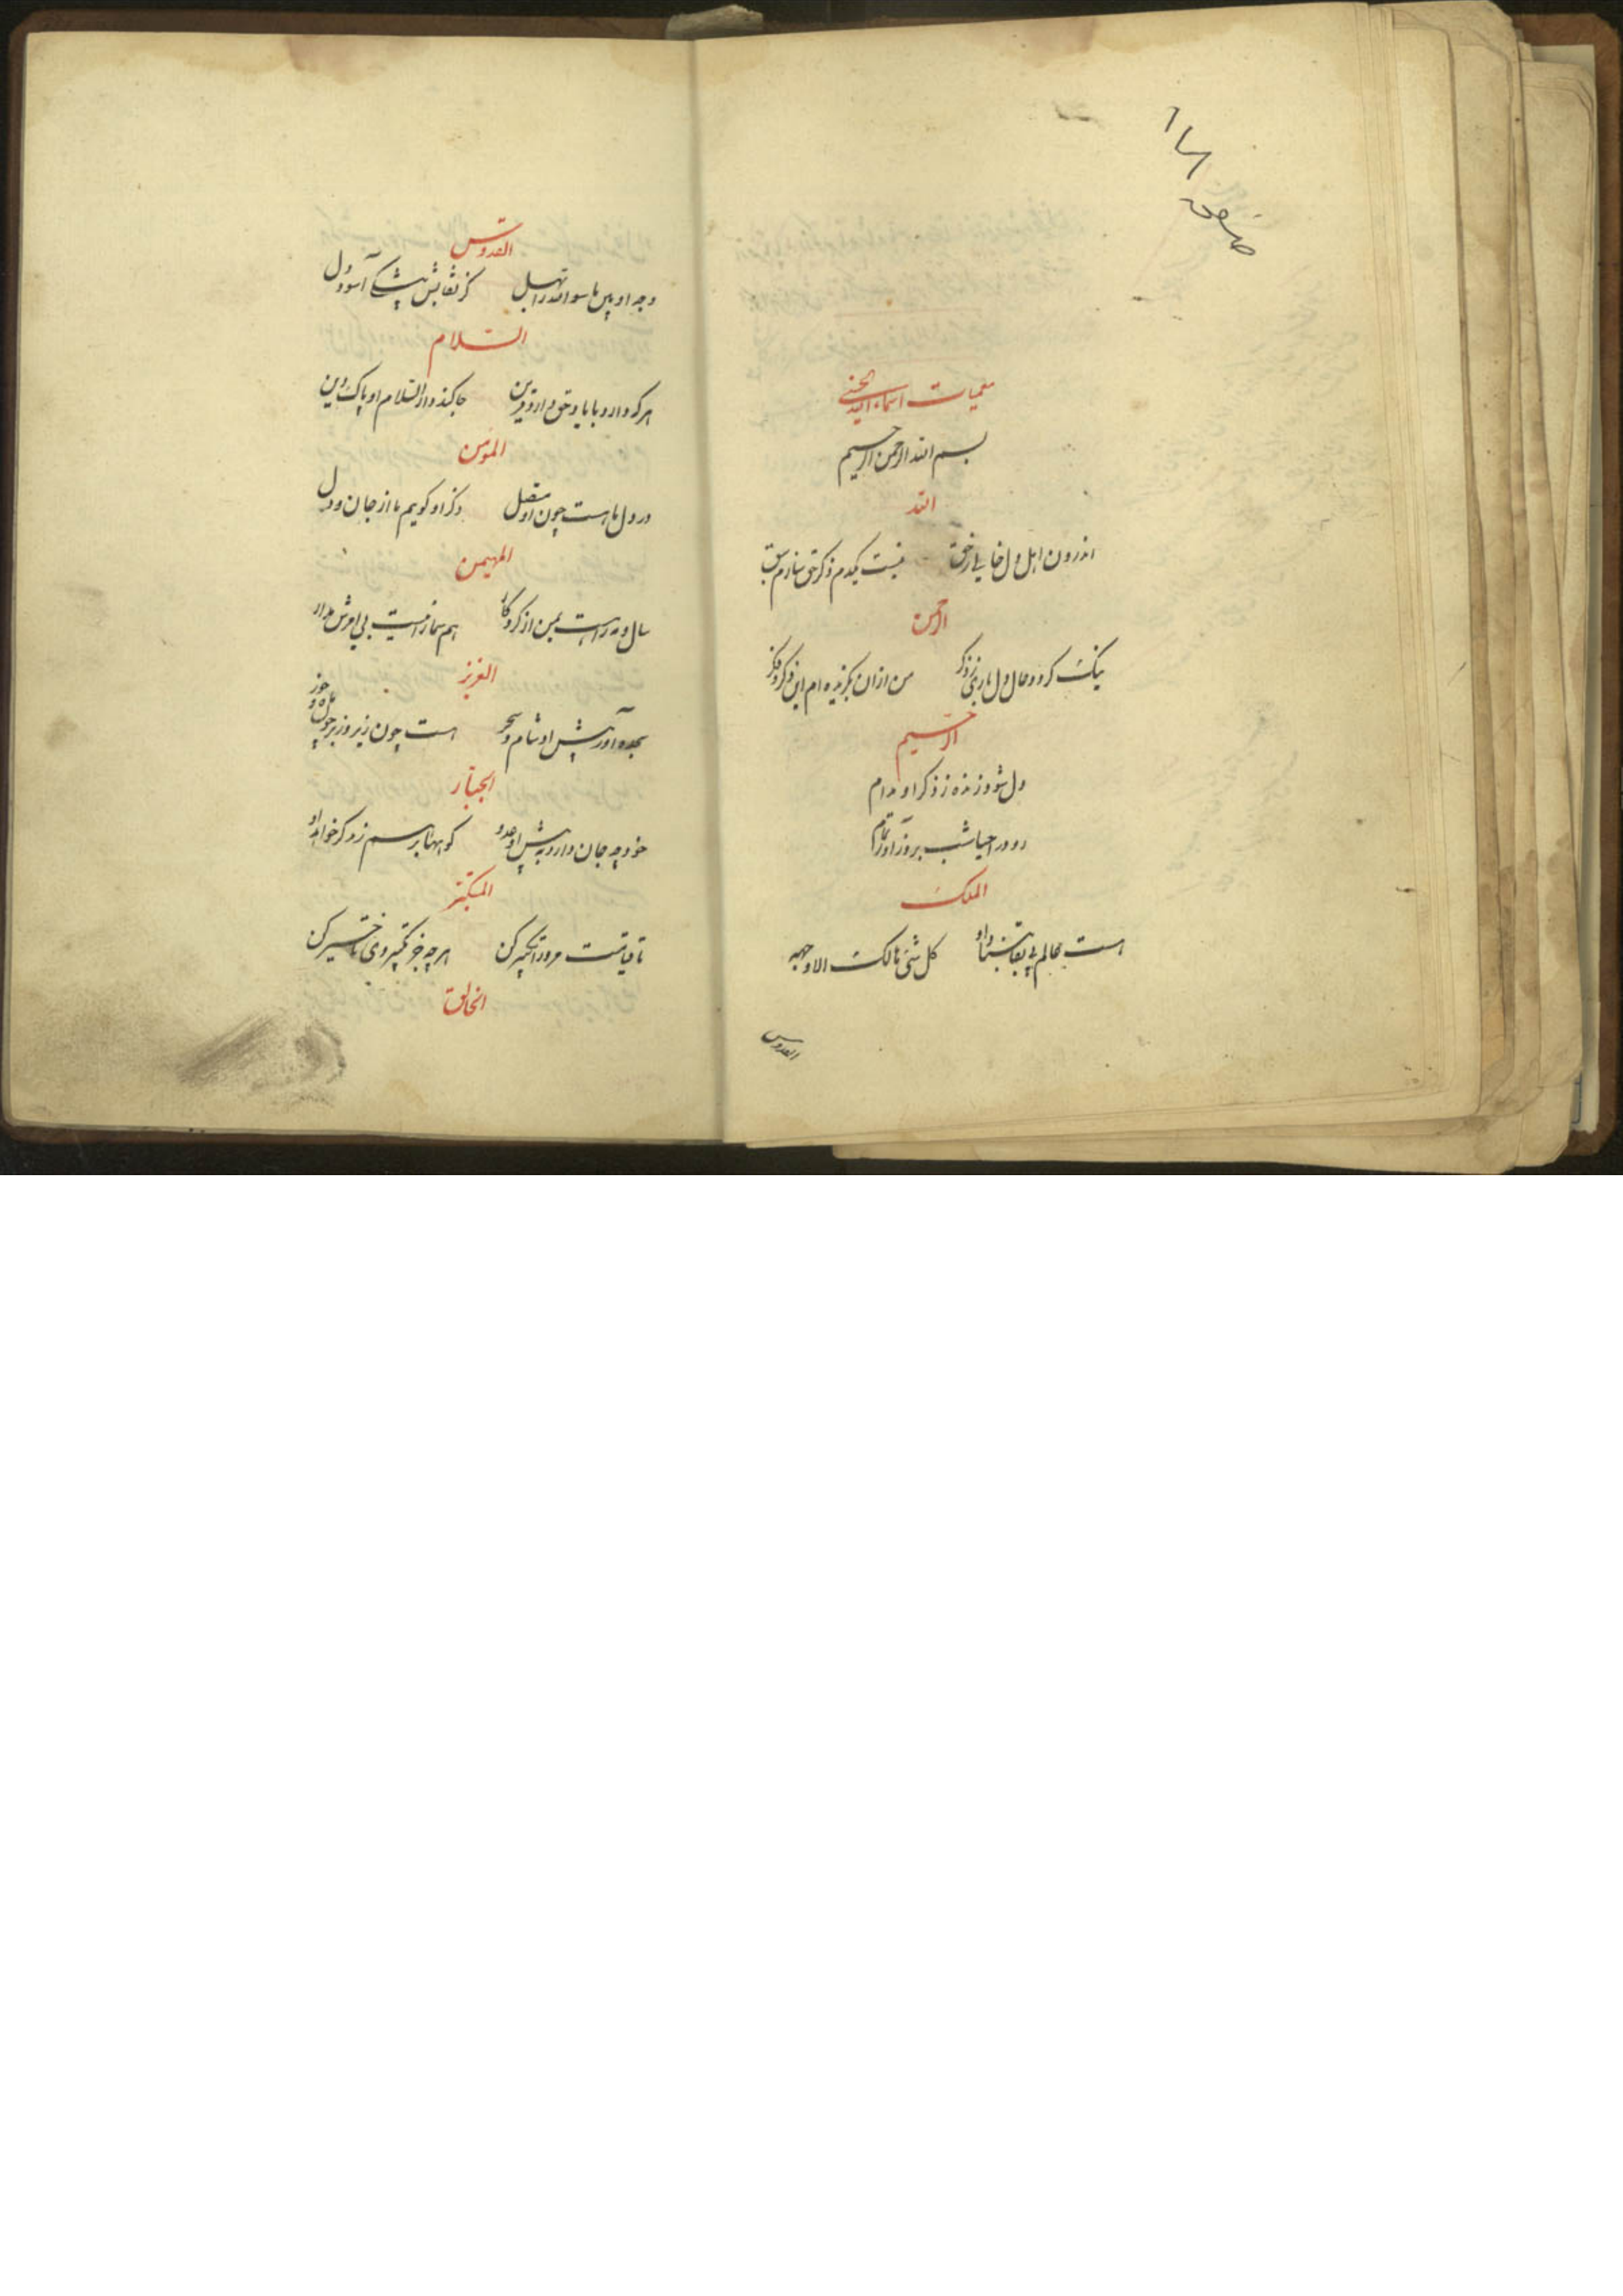 معمیات اسماء الله الحسنی
بسم الله الرحمن الرحیم
الله
اندرون اهل دل خالی ز حق نیست یکدم ذکر حق سازم سبق
الرحمن
نیک کردد حال دل باری ز ذکر من از ان بکزیده ام این ذکر و فکر
الرحیم
دل شود زنده ز ذکر او مدام
رو در احیا شب بروز آور تمام
الملک
است عالم بی بقا کل شئ هالک الا وجهه
القدوس
القدوس
وجه او بین ماسوا الله را بهل کز بقایش آسود دل
السلام
هر که دارد با یاد حق دارد قرین جا کند دار السلام او پاک دین
المؤمن
در دل ما هست چون او متصل ذکر او کویم ما از جان و دل
المهیمن
سال و مه راهست یمن از کردکار هم نیست بی امرش مدار
العزیز
سجده آور پیش او شام و سحر است چون زیر و زبر
الجبار
خود چه جان دارد به پیش او عدو کوبها بر سم زد کر خواهد او
المتکبر
تا قیامت مرورا تکبیر کن هر چه جز تکبیر وی تاخیر کن
الخالق